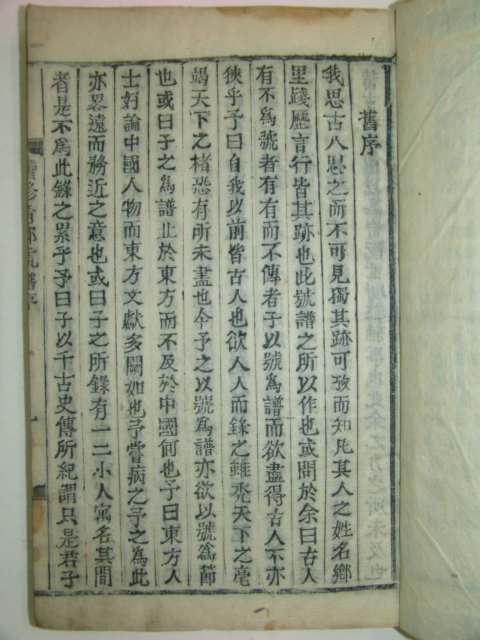 舊序
我思古人思之而不可見獨其跡可攷而知凡其人之姓名鄉
里踐歷言行皆其跡也此號譜之所以作也或問於余曰古人
有不爲號者有有而不傳者子以號爲譜而欲盡得古人不亦
狹乎予曰自我以前皆古人也欲人人而錄之雖禿天下之毫
竭天下之楮恐有所未盡也今予之以號爲譜亦欲以號爲節
也或曰子之爲譜止於東方而不及於中國何也予曰東方人
士好論中國人物而東方文獻多闕如也予嘗病之予之爲此
亦畧遠而務近之意也或曰子之所錄有一二小人寓名其間
者是不爲此錄之累乎予曰子以千古史傳所紀謂只是君子
號譜序